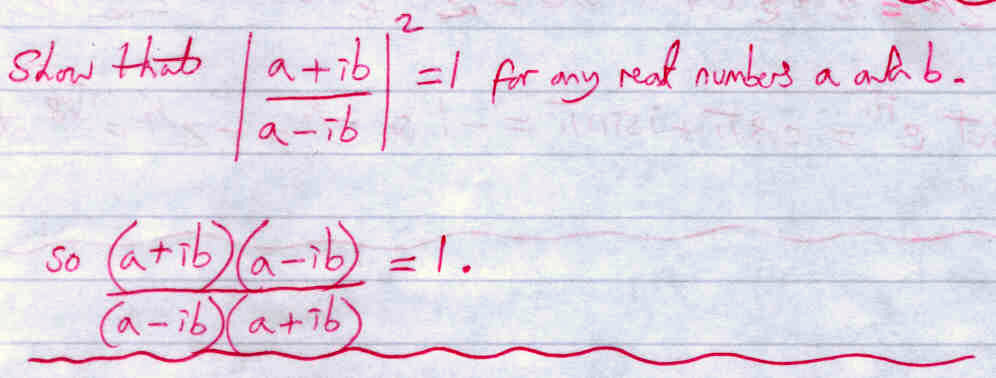 Show that |(a+ib)/(a-ib)|² = 1 for any real numbers a and b.
so (a+ib)(a-ib)/(a-ib)(a+ib) = 1.